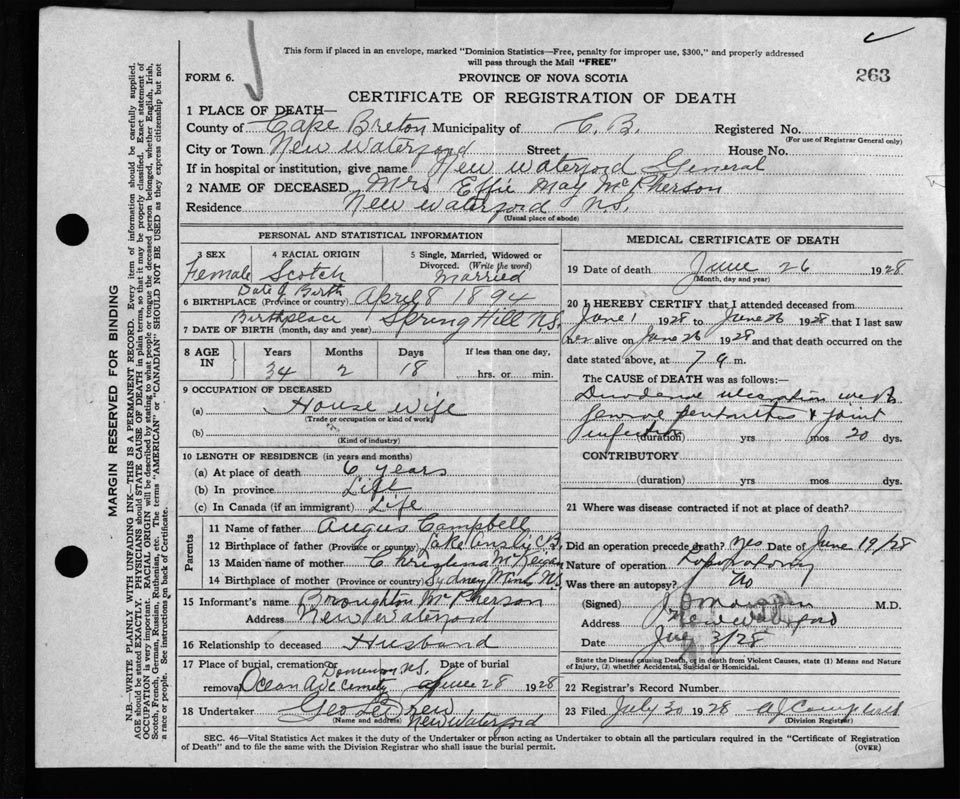 This form if placed in an envelope, marked "Dominion Statistics—Free, penalty for improper use, $300," and properly addressed
will pass through the Mail "FREE"
FORM 6.
PROVINCE OF NOVA SCOTIA
263
CERTIFICATE OF REGISTRATION OF DEATH
1 PLACE OF DEATH—
County of Cape Breton Municipality of C. B. Registered No.
(For use of Registrar General only)
City or Town New Waterford Street House No.
If in hospital or institution, give name New Waterford General
2 NAME OF DECEASED Mrs Effie May McPherson
Residence New Waterford N.S.
(Usual place of abode)
PERSONAL AND STATISTICAL INFORMATION
3 SEX 4 RACIAL ORIGIN 5 Single, Married, Widowed or
Divorced. (Write the word)
Female Scotch Married
Date of Birth
6 BIRTHPLACE (Province or country) April 8 1894
Birthplace
7 DATE OF BIRTH (month, day and year) Spring Hill N.S.
8 AGE IN Years Months Days If less than one day,
34 2 18 hrs. or min.
9 OCCUPATION OF DECEASED
(a) House wife
(Trade or occupation or kind of work)
(b)
(Kind of industry)
10 LENGTH OF RESIDENCE (in years and months)
(a) At place of death 6 years
(b) In province Life
(c) In Canada (if an immigrant) Life
Parents
11 Name of father Angus Campbell
12 Birthplace of father (Province or country) Lake Ainslie C.B.
13 Maiden name of mother
14 Birthplace of mother (Province or country) Sydney Mines N.S.
15 Informant's name Broughton McPherson
Address New Waterford
16 Relationship to deceased Husband
17 Place of burial, cremation or Dominion, N.S. Date of burial
removal Ocean Ave Cemety June 28 1928
18 Undertaker Geo
(Name and address) New Waterford
MEDICAL CERTIFICATE OF DEATH
19 Date of death June 26 1928
(Month, day and year)
20 I HEREBY CERTIFY that I attended deceased from
June 1 1928 to June 26 1928 that I last saw
her alive on June 26 1928 and that death occurred on the
date stated above, at 7 a m.
The CAUSE OF DEATH was as follows:—
Duodenal ulceration with
& joint
infection (duration) yrs mos 20 dys.
CONTRIBUTORY
(duration) yrs mos dys.
21 Where was disease contracted if not at place of death?
Did an operation precede death? Yes Date of June 19/28
Nature of operation
Was there an autopsy? No
(Signed) M.D.
Address New Waterford
Date 3/28
State the Disease causing Death, or in death from Violent Causes, state (1) Means and Nature
of Injury, (2) whether Accidental, Suicidal or Homicidal.
22 Registrar's Record Number
23 Filed July 30 1928
(Division Registrar)
SEC. 46—Vital Statistics Act makes it the duty of the Undertaker or person acting as Undertaker to obtain all the particulars required in the "Certificate of Registration
of Death" and to file the same with the Division Registrar who shall issue the burial permit.
(OVER)
MARGIN RESERVED FOR BINDING
N.B.—WRITE PLAINLY WITH UNFADING INK—THIS IS A PERMANENT RECORD. Every item of information should be carefully supplied.
AGE should be stated EXACTLY. PHYSICIANS should STATE CAUSE OF DEATH in plain terms, so that it may be properly classified. Exact statement of
OCCUPATION is very important. RACIAL ORIGIN will be described by stating to what people or tongue the deceased person belonged, whether English, Irish,
Scotch, French, German, Russian, Ruthenian, etc. The terms "AMERICAN" or "CANADIAN" SHOULD NOT BE USED as they express citizenship but not
a race or people. See instructions on back of Certificate.